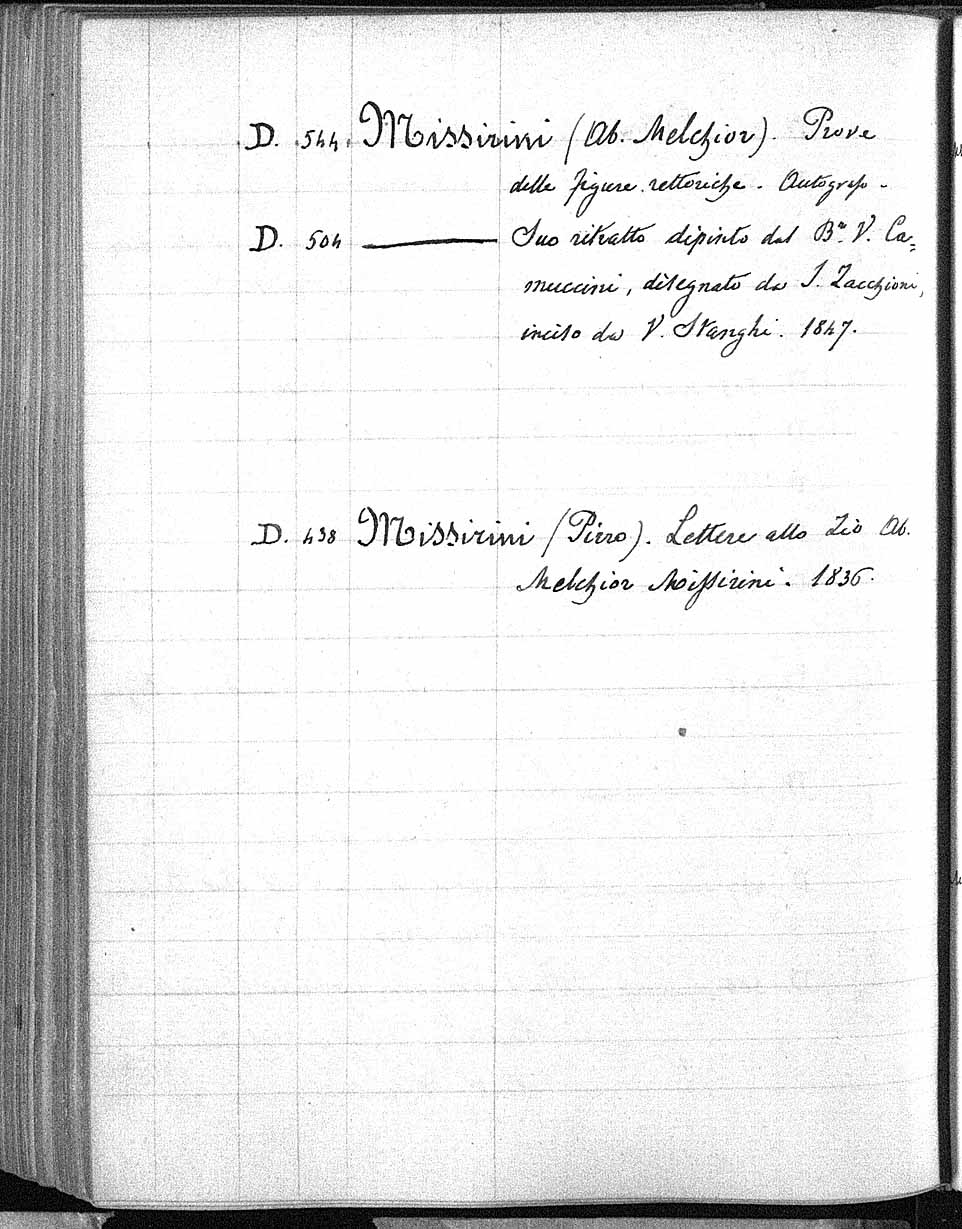 D. 544. Missirini (Ab. Melchior). Prove
delle figure rettoriche. Autografo.
D. 504 ——— Suo ritratto dipinto dal B.ne V. Ca=
muccini, disegnato da I. Zacchioni,
inciso da V. Stanghi. 1847.
D. 438 Missirini (Pirro). Lettere allo Zio Ab.
Melchior Missirini. 1836.